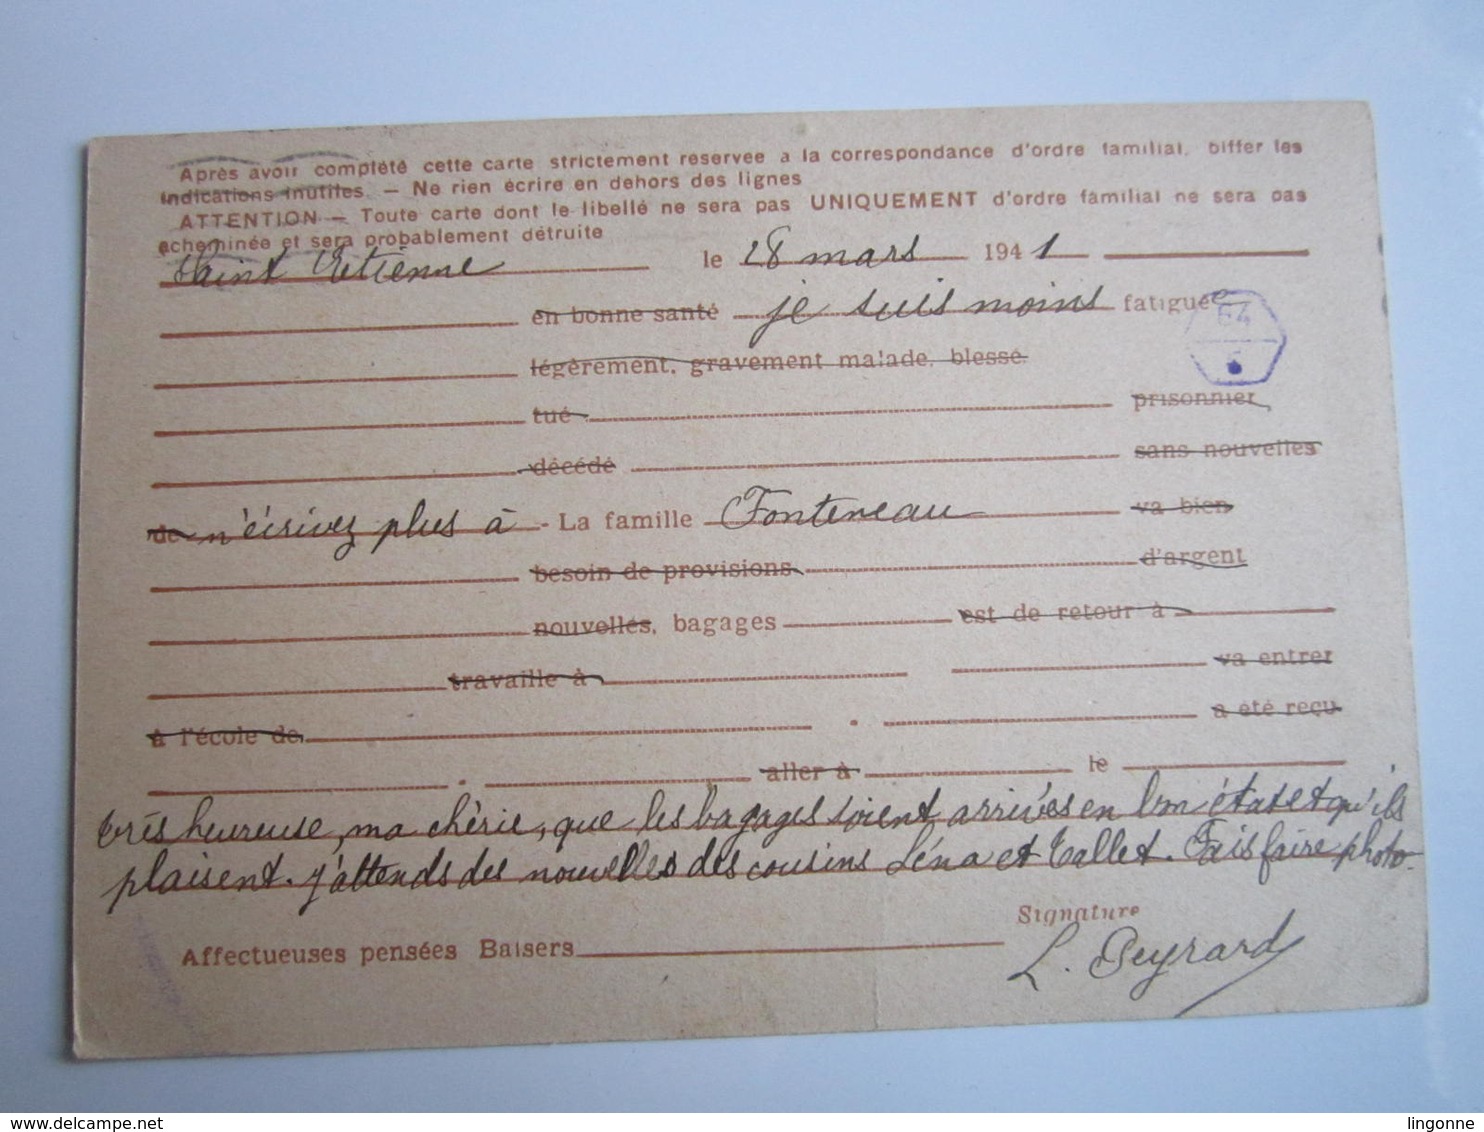 Après avoir complété cette carte strictement réservée à la correspondance d'ordre familial, biffer les
indications inutiles. — Ne rien écrire en dehors des lignes
ATTENTION — Toute carte dont le libellé ne sera pas UNIQUEMENT d'ordre familial ne sera pas
acheminée et sera probablement détruite
Saint Etienne le 28 mars 1941
en bonne santé je suis moins fatiguée
légèrement, gravement malade, blessé.
tué prisonnier
décédé sans nouvelles
de n'écrivez plus à - La famille Fonteneau va bien
besoin de provisions d'argent
nouvelles, bagages est de retour à
travaille à va entrer
à l'école de a été reçu
aller à le
très heureuse, ma chérie, que les bagages soient arrivés en bon état et qu'ils
plaisent. j'attends des nouvelles des cousins Léna et Tallet. Fais faire photo
Signature
Affectueuses pensées Baisers
L. Peyrard
64
6
delcampe.net
lingonne